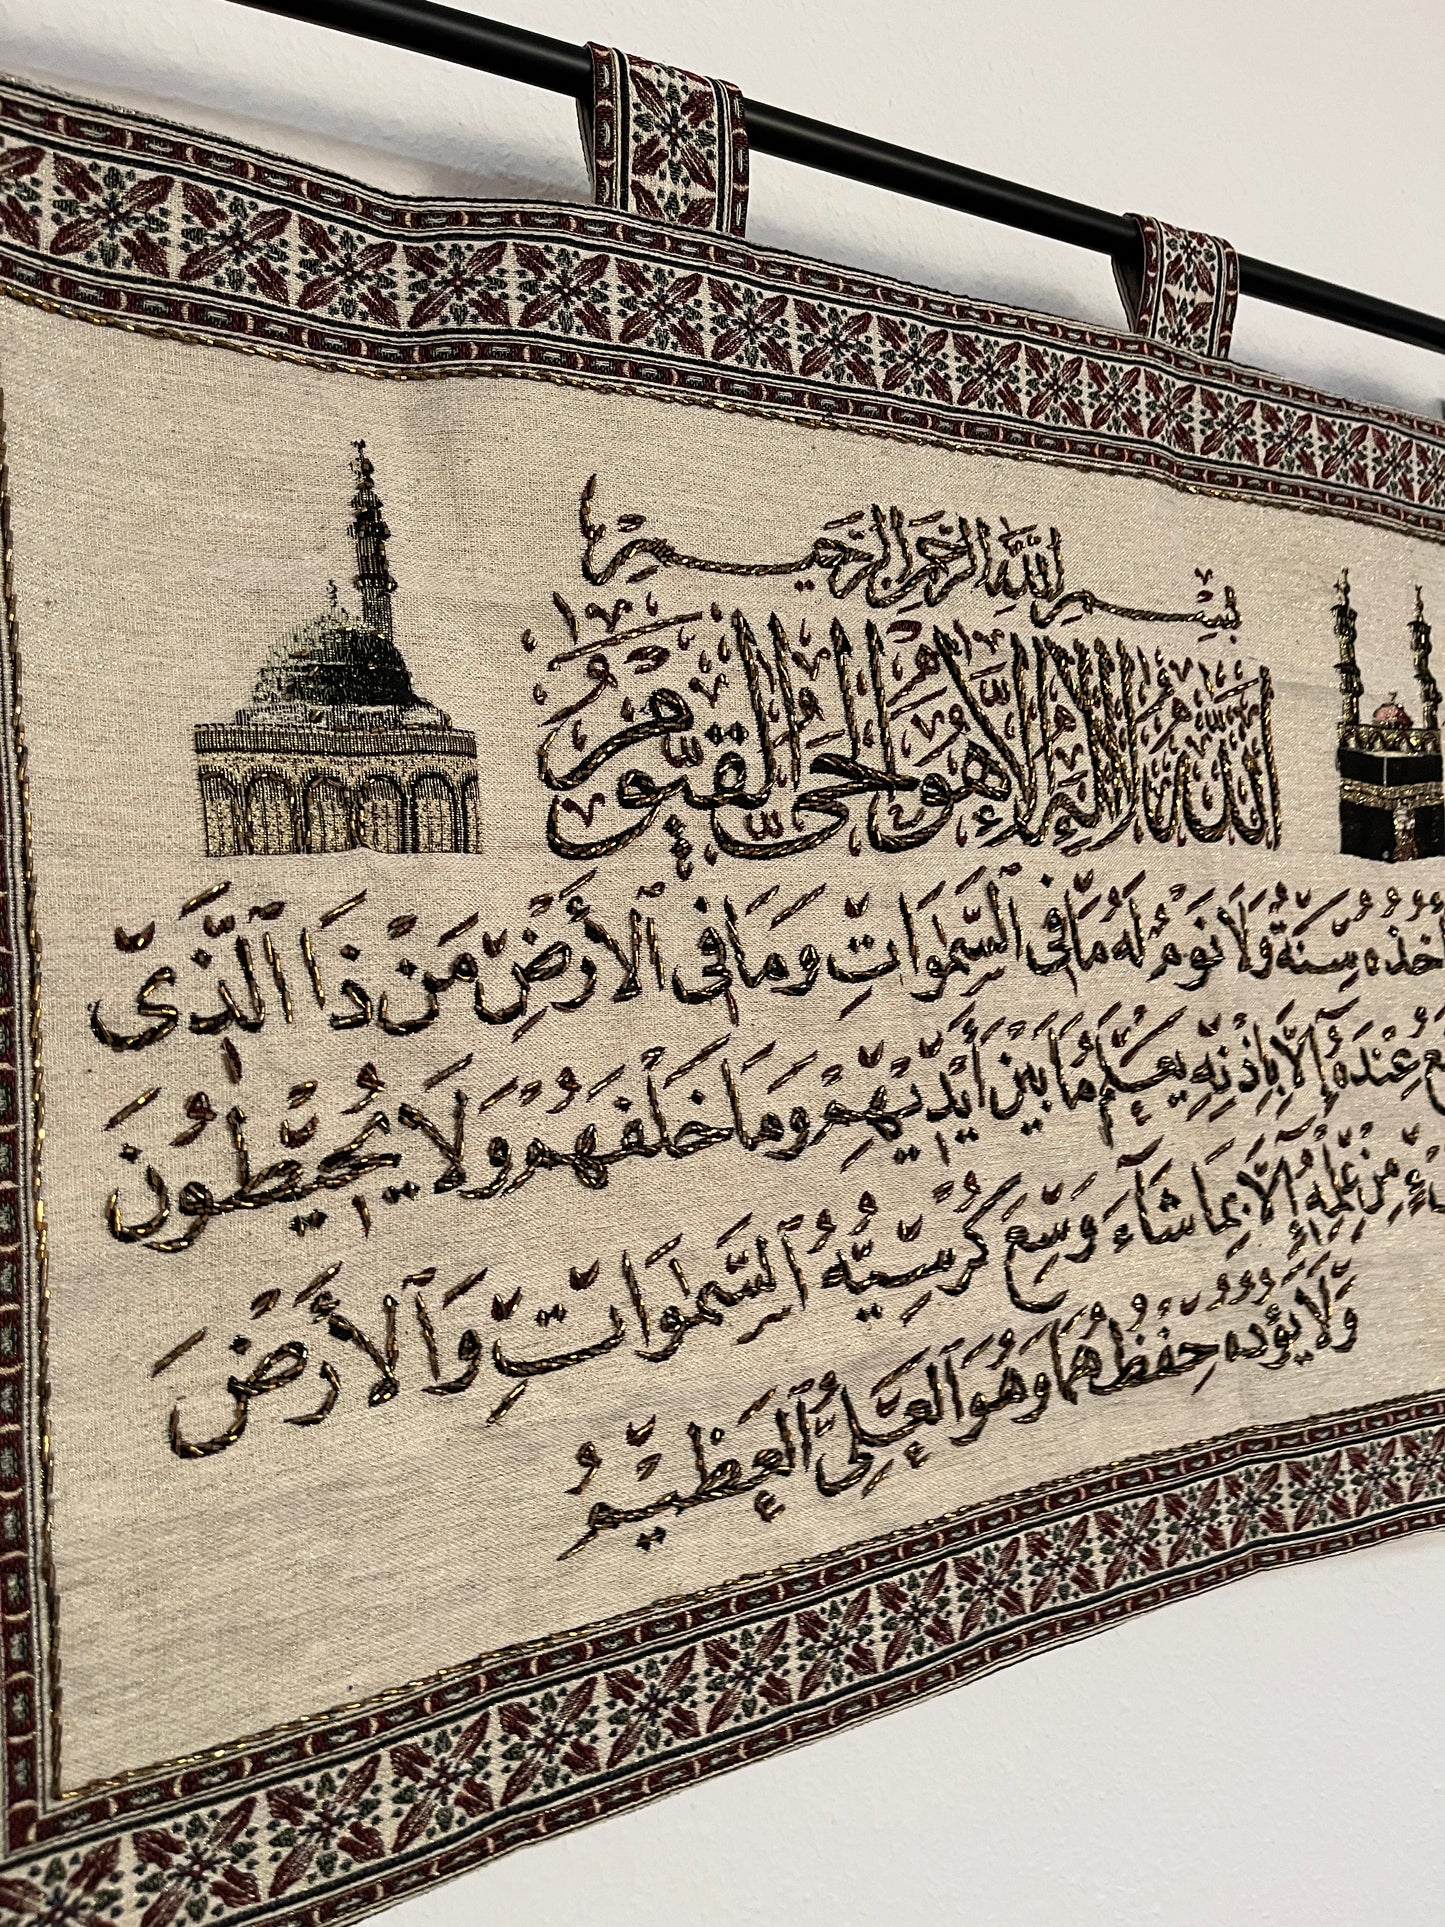 بِسْمِ اللهِ الرَّحْمٰنِ الرَّحِيمِ
اللهُ لَا إِلٰهَ إِلَّا هُوَ الْحَيُّ الْقَيُّومُ
سِنَةٌ وَلَا نَوْمٌ لَهُ مَا فِي ٱلسَّمٰوَاتِ وَمَا فِي ٱلْأَرْضِ مَنْ ذَا ٱلَّذِي
عِنْدَهُ إِلَّا بِإِذْنِهِ يَعْلَمُ مَا بَيْنَ أَيْدِيْهِمْ وَمَا خَلْفَهُمْ وَلَا يُحِيْطُونَ
مِنْ عِلْمِهِ إِلَّا بِمَا شَاءَ وَسِعَ كُرْسِيُّهُ ٱلسَّمٰوَاتِ وَٱلْأَرْضَ
وَلَا يَؤُدُهُ حِفْظُهُمَا وَهُوَ ٱلْعَلِيُّ ٱلْعَظِيْمُ